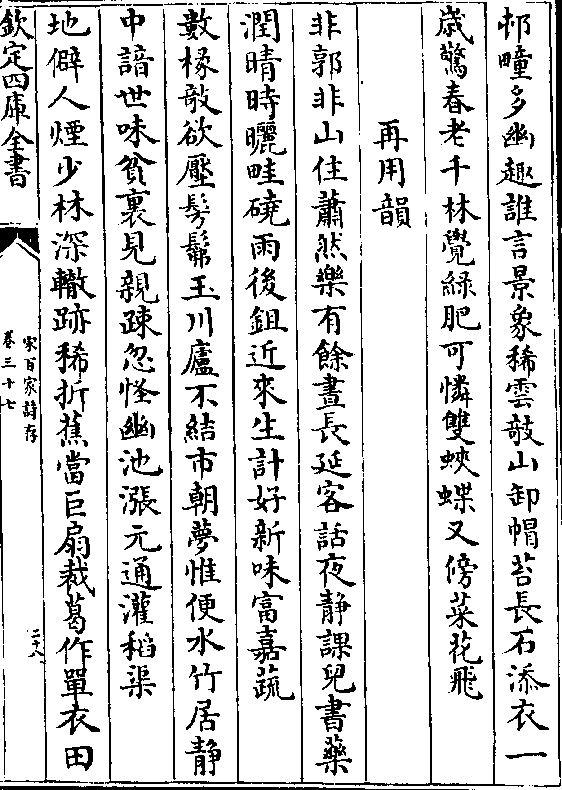 邨疃多幽趣誰言景象稀雲敧山卸帽苔長石添衣一
歲驚春老千林覺綠肥可憐雙蛺蝶又傍菜花飛
再用韻
非郭非山住蕭然樂有餘晝長延客話夜靜課兒書藥
潤晴時曬畦磽雨後鉏近來生計好新味富嘉蔬
數椽敧欲壓髣髴玉川廬不結市朝夢惟便水竹居靜
中諳世味貧裏見親疎忽怪幽池漲元通灌稻渠
地僻人煙少林深轍跡稀折蕉當巨扇裁葛作單衣田
欽定四庫全書
宋百家詩存
卷三十七
二十八